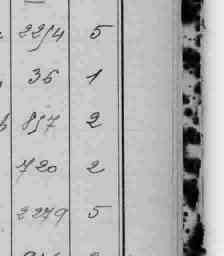 2254 5
36 1
857 2
720 2
2279 5